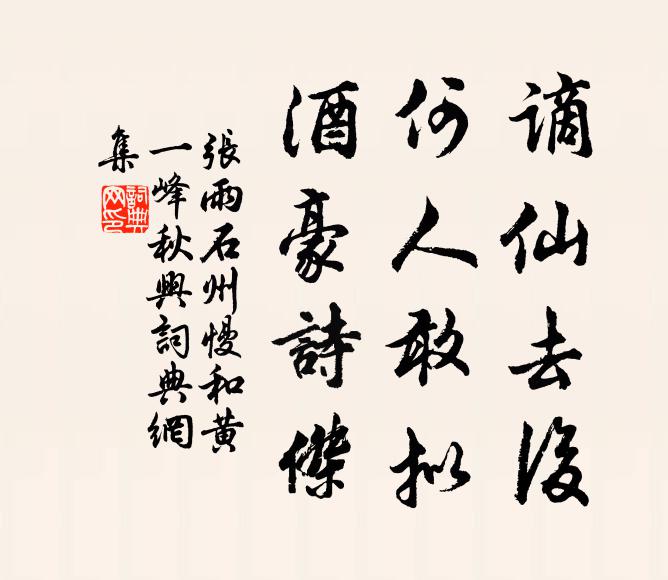 謫仙去後
何人敢拟
酒豪詩傑
張雨石州慢和黄
一峰秋興詞典網
集
詞典
网印